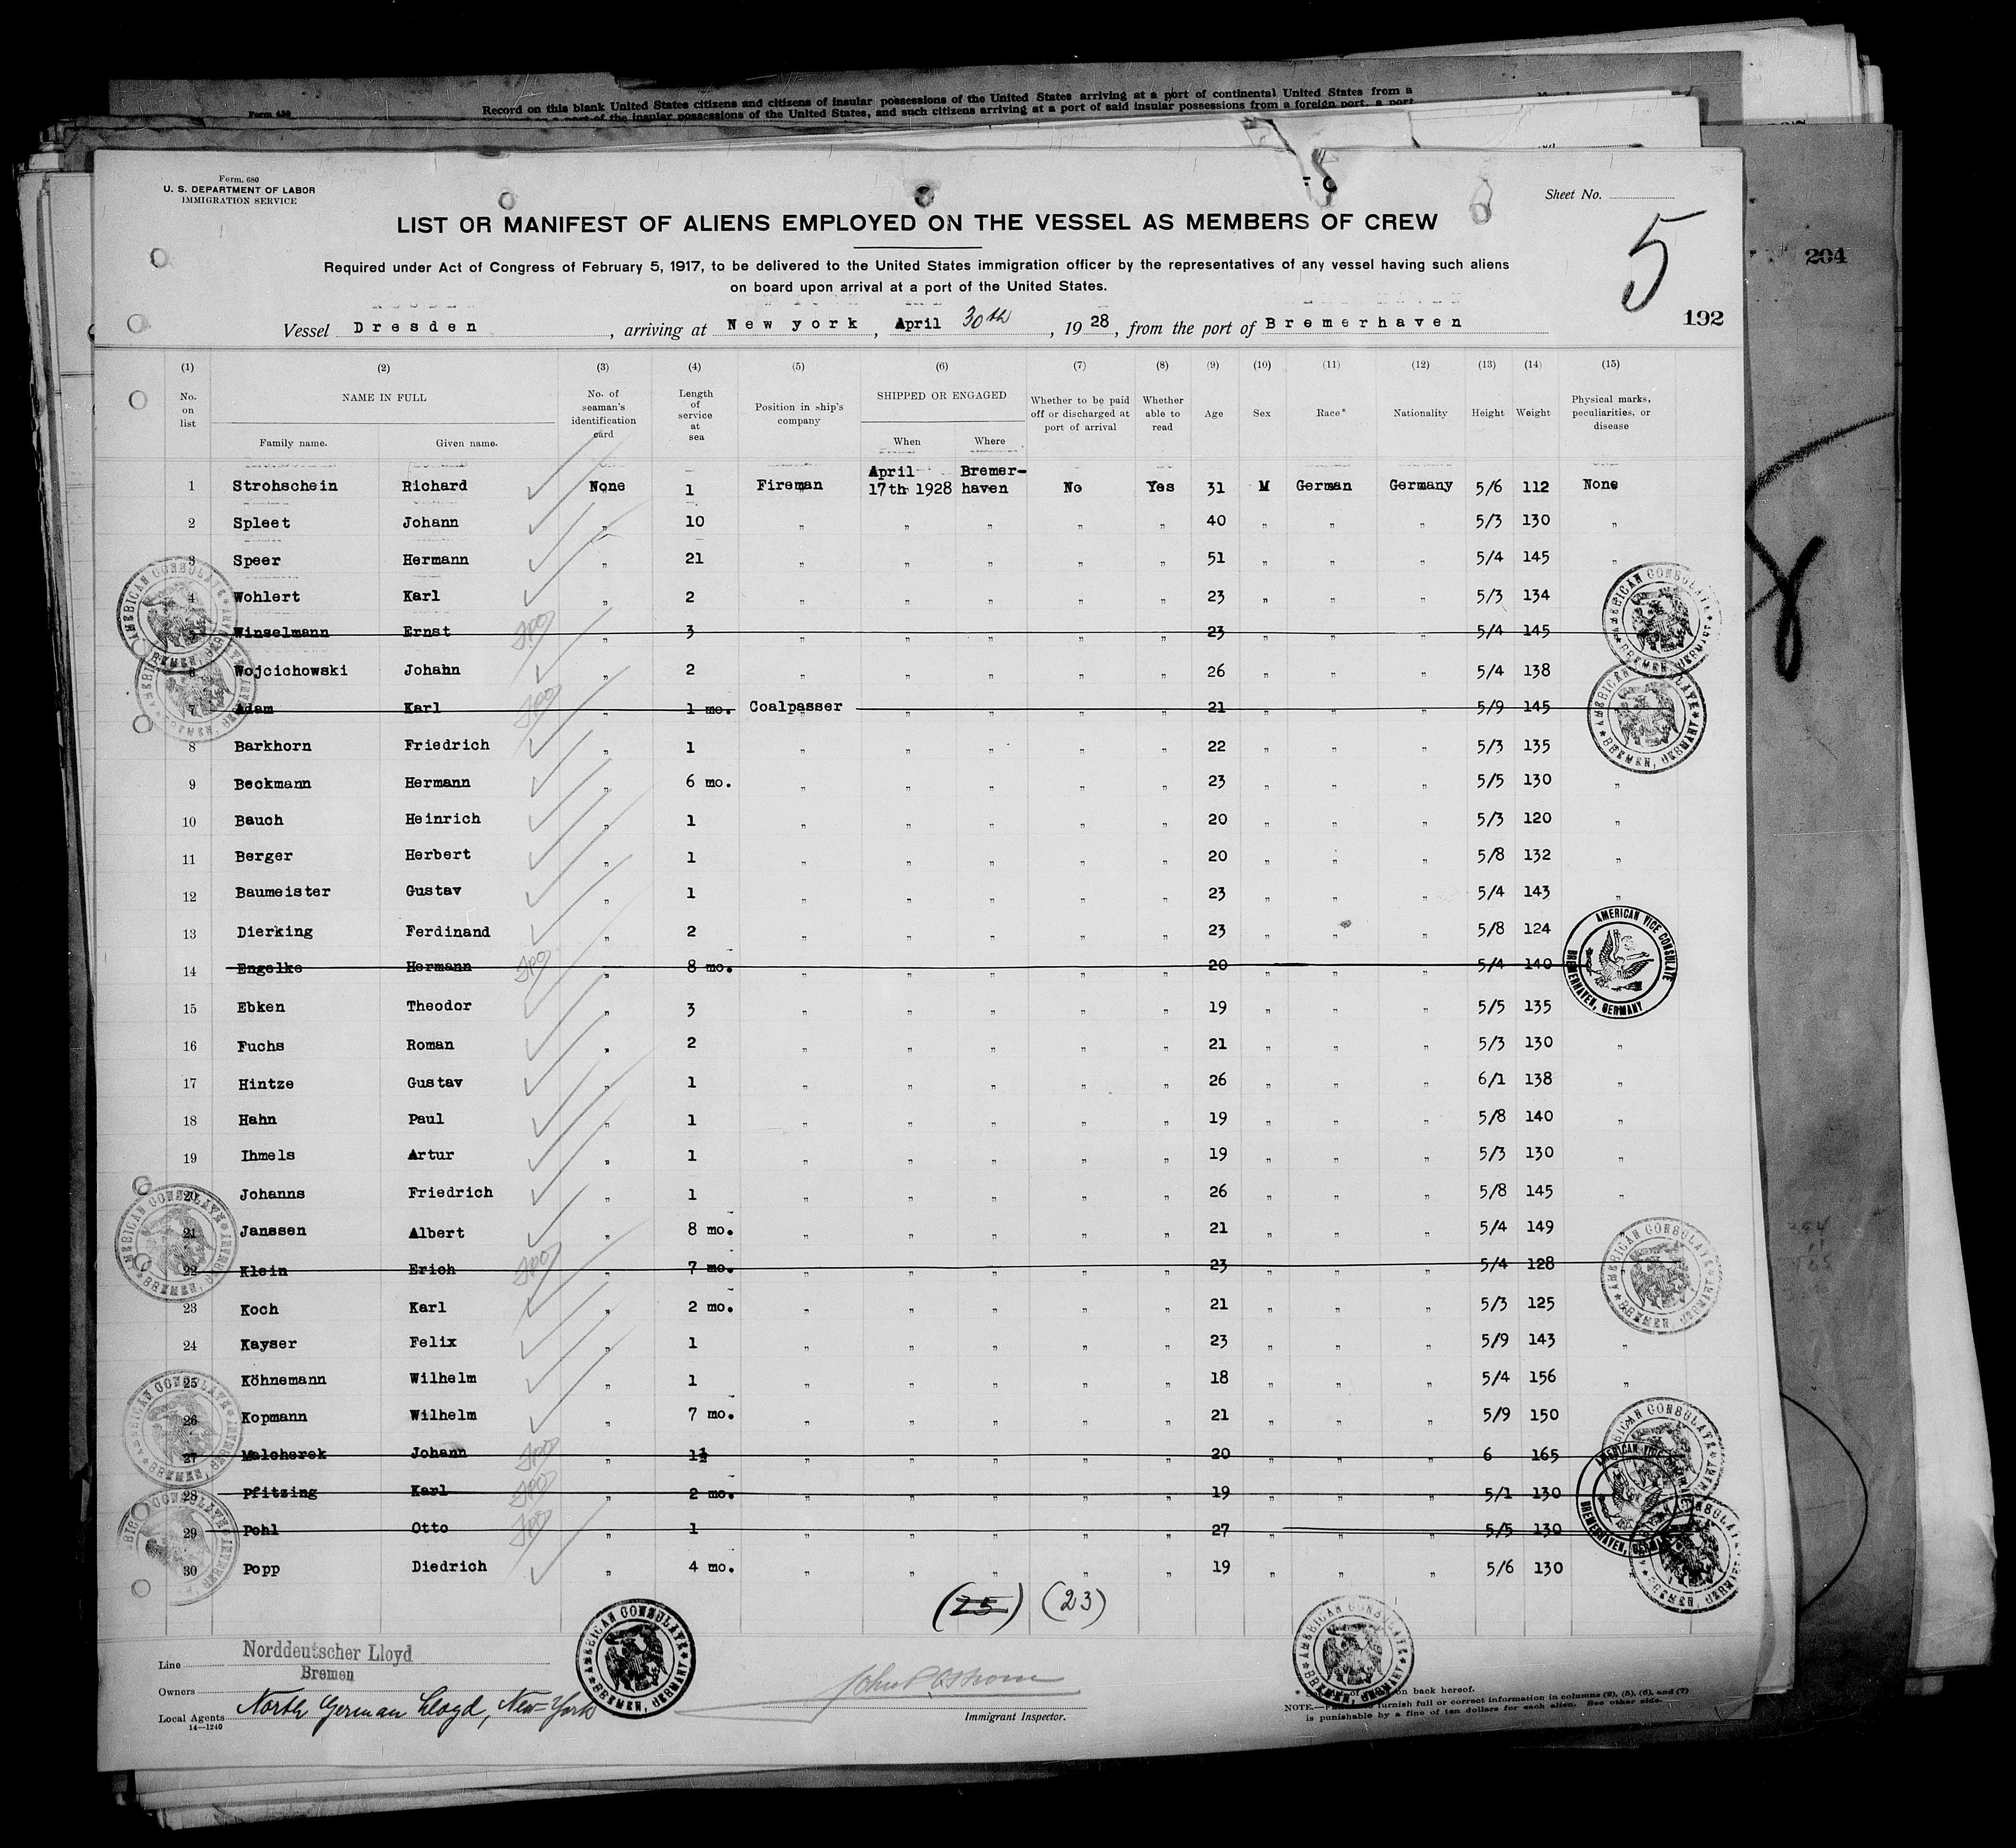 Form 630
Record on this blank United States citizens and citizens of insular possessions of the United States arriving at a port of continental United States from a
a port of the insular possessions of the United States, and such citizens arriving at a port of said insular possessions from a foreign port, a port
204
Form. 680
U. S. DEPARTMENT OF LABOR
IMMIGRATION SERVICE
Sheet No.
5
192
LIST OR MANIFEST OF ALIENS EMPLOYED ON THE VESSEL AS MEMBERS OF CREW
Required under Act of Congress of February 5, 1917, to be delivered to the United States immigration officer by the representatives of any vessel having such aliens
on board upon arrival at a port of the United States.
Vessel Dresden, arriving at New york, April 30th, 1928, from the port of Bremerhaven
(1) (2) (3) (4) (5) (6) (7) (8) (9) (10) (11) (12) (13) (14) (15)
No. on list NAME IN FULL Family name. Given name. No. of seaman's identification card Length of service at sea Position in ship's company SHIPPED OR ENGAGED When Where Whether to be paid off or discharged at port of arrival Whether able to read Age Sex Race* Nationality Height Weight Physical marks, peculiarities, or disease
1 Strohschein Richard None 1 Fireman April 17th 1928 Bremer-haven No Yes 31 M German Germany 5/6 112 None
2 Spleet Johann „ 10 „ „ „ „ „ 40 „ „ „ 5/3 130 „
3 Speer Hermann „ 21 „ „ „ „ „ 51 „ „ „ 5/4 145 „
4 Wohlert Karl „ 2 „ „ „ „ „ 23 „ „ „ 5/3 134
5 Winselmann Ernst „ 3 „ „ „ „ „ 23 „ „ „ 5/4 145
6 Wojcichowski Johahn „ 2 „ „ „ „ „ 26 „ „ „ 5/4 138
7 Adam Karl „ 1 mo. Coalpasser „ „ „ „ 21 „ „ „ 5/9 145
8 Barkhorn Friedrich „ 1 „ „ „ „ „ 22 „ „ „ 5/3 135
9 Beckmann Hermann „ 6 mo. „ „ „ „ „ 23 „ „ „ 5/5 130 „
10 Bauch Heinrich „ 1 „ „ „ „ „ 20 „ „ „ 5/3 120 „
11 Berger Herbert „ 1 „ „ „ „ „ 20 „ „ „ 5/8 132 „
12 Baumeister Gustav „ 1 „ „ „ „ „ 23 „ „ „ 5/4 143 „
13 Dierking Ferdinand „ 2 „ „ „ „ „ 23 „ „ „ 5/8 124
14 Engelke Hermann „ 8 mo. „ „ „ „ „ 20 „ „ „ 5/4 140
15 Ebken Theodor „ 3 „ „ „ „ „ 19 „ „ „ 5/5 135
16 Fuchs Roman „ 2 „ „ „ „ „ 21 „ „ „ 5/3 130 „
17 Hintze Gustav „ 1 „ „ „ „ „ 26 „ „ „ 6/1 138 „
18 Hahn Paul „ 1 „ „ „ „ „ 19 „ „ „ 5/8 140 „
19 Ihmels Artur „ 1 „ „ „ „ „ 19 „ „ „ 5/3 130 „
20 Johanns Friedrich „ 1 „ „ „ „ „ 26 „ „ „ 5/8 145 „
21 Janssen Albert „ 8 mo. „ „ „ „ „ 21 „ „ „ 5/4 149
22 Klein Erich „ 7 mo. „ „ „ „ „ 23 „ „ „ 5/4 128
23 Koch Karl „ 2 mo. „ „ „ „ „ 21 „ „ „ 5/3 125
24 Kayser Felix „ 1 „ „ „ „ „ 23 „ „ „ 5/9 143 „
25 Köhnemann Wilhelm „ 1 „ „ „ „ „ 18 „ „ „ 5/4 156 „
26 Kopmann Wilhelm „ 7 mo. „ „ „ „ „ 21 „ „ „ 5/9 150
27 Malcherek Johann „ 1½ „ „ „ „ „ 20 „ „ „ 6 165
28 Pfitzing Karl „ 2 mo. „ „ „ „ „ 19 „ „ „ 5/1 130
29 Pohl Otto „ 1 „ „ „ „ „ 27 „ „ „ 5/5 130
30 Popp Diedrich „ 4 mo. „ „ „ „ „ 19 „ „ „ 5/6 130
(25) (23)
AMERICAN CONSULATE BREMEN, GERMANY
AMERICAN VICE CONSULATE BREMERHAVEN, GERMANY
Line Norddeutscher Lloyd
Bremen
Owners
Local Agents North German Lloyd, New-York
14—1240
Immigrant Inspector.
on back hereof.
NOTE. furnish full or correct information in columns (2), (5), (6), and (7)
is punishable by a fine of ten dollars for each alien. See other side.